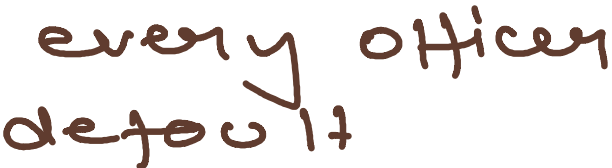 every officer
default